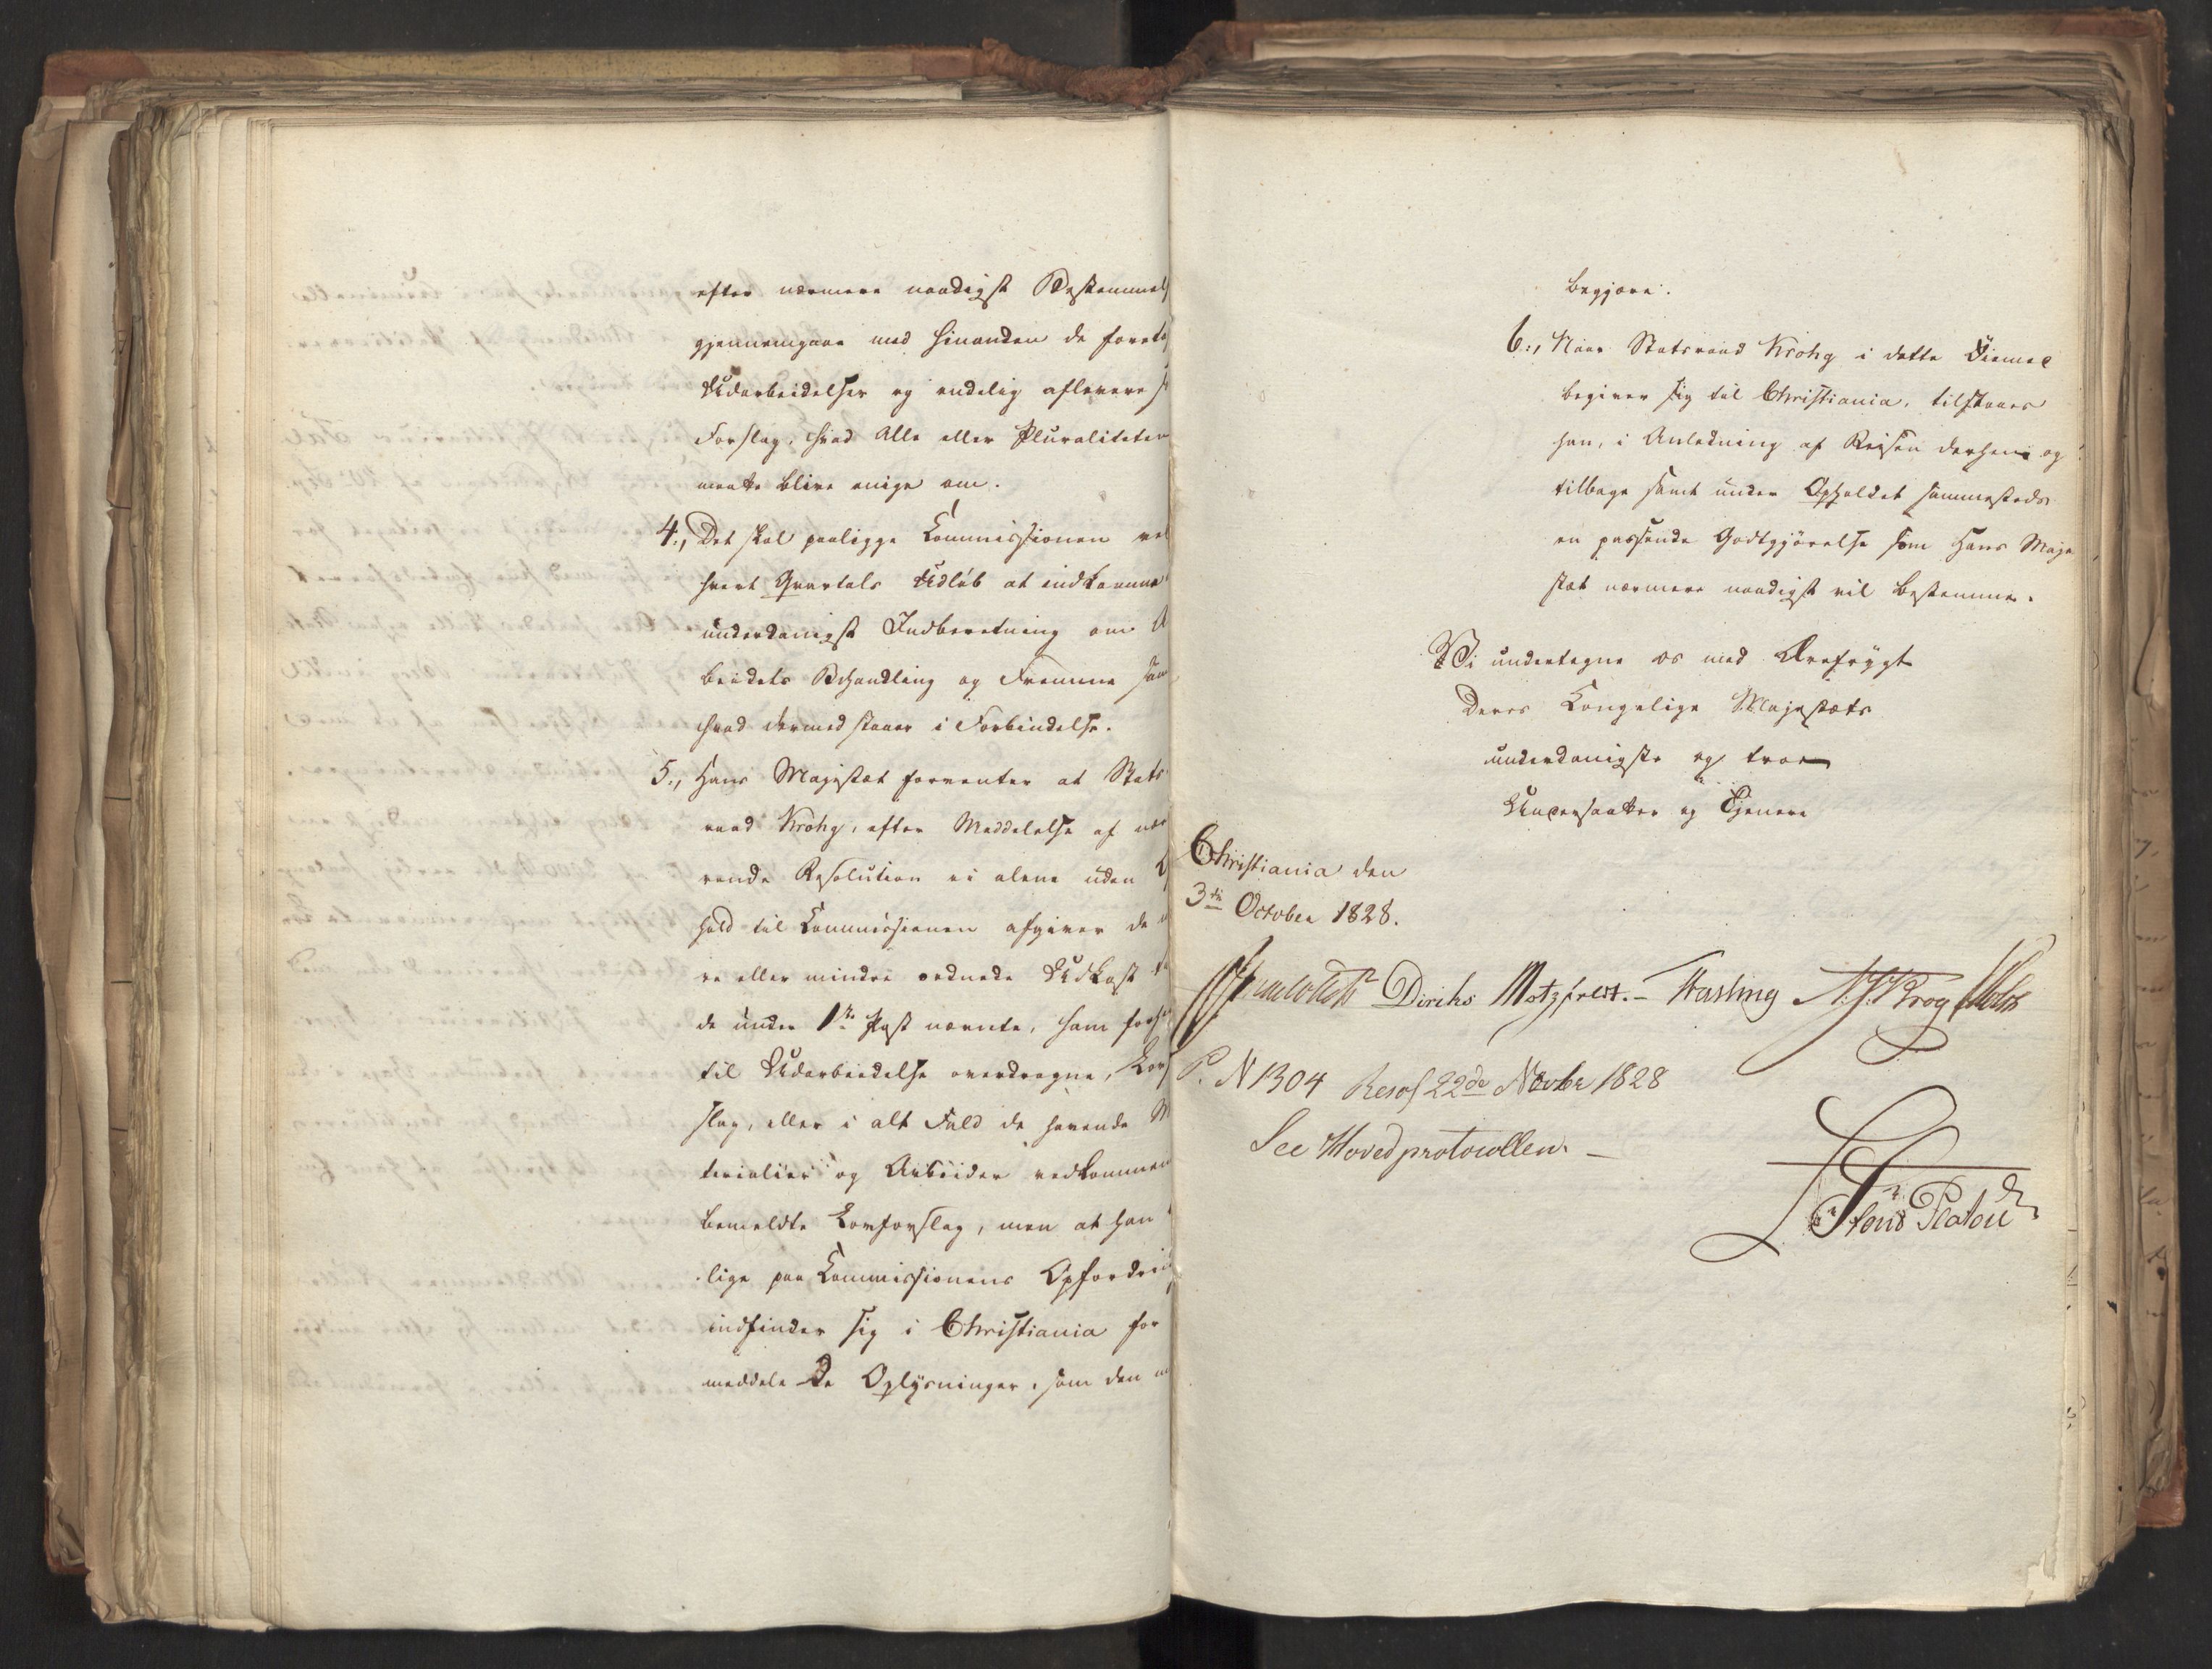 efter nærmere naadigst Bestemmels
gjennemgaae med hinanden de foreta
Udarbeidelser og endelig aflevere s
Forslag, hvad Alle eller Pluraliteten
maatte blive enige om.
4., Det skal paaligge Commissionen ved
hvert Qvartals Udløb at indkomme
underdanigst Indberetning om A
beidets Behandling og Fremme sam
hvad dermed staaer i Forbindelse.
5., Hans Majestæt forventer at Stats
raad Krohg, efter Meddelelse af nær
rende Resolution ei alene uden
hold til Commissionen afgiver de
re eller mindre ordnede Udkast
de under 1ste Post nævnte, ham
til Udarbeidelse overdragne, Lov
slag, eller i alt Fald de havende M
terialier og Arbeider vedkommen
bemeldte Lovforslag, men at han
lige paa Commissionens Opfordrin
indfinder sig i Christiania for
meddele de Oplysninger, som den m
begjære.
6., Naar Statsraad Krohg i dette Øiemed
begiver sig til Christiania, tilstaaes
ham, i Anledning af Reisen derhen og
tilbage samt under Opholdet sammesteds
en passende Godtgjörelse som Hans Maje
stæt nærmere naadigst vil bestemme.
Vi undertegne os med Ærefrygt
Deres Kongelige Majestæts
underdanigste og troe
Undersaatter og Tjenere
Christiania den
3die October 1828.
Diriks Motzfeldt. Fasting N. J. Krog Holst
P. N 1304 Resol 22de Novbr 1828
See Hovedprotocollen. –
Platou